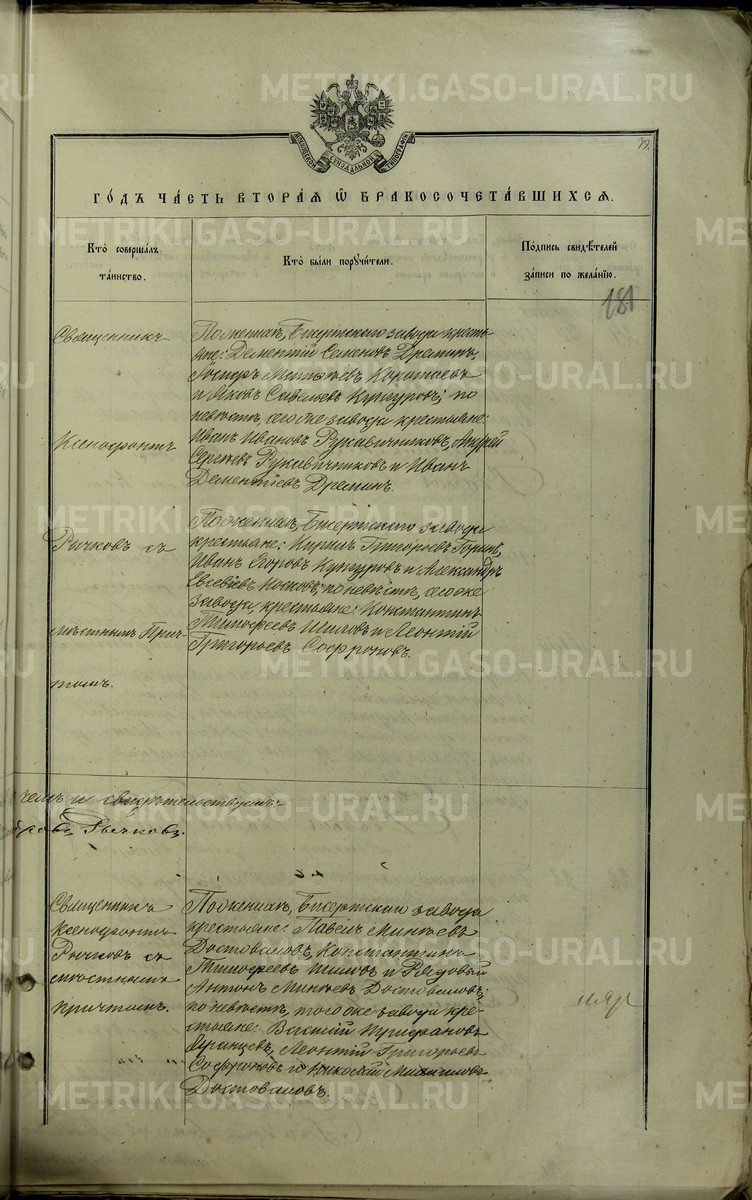 METRIKI.GASO-URAL.RU
МОСКОВСКОЙ СѴНОДАЛЬНОЙ ТИПОГРАФІИ
79.
ГО́ДЪ ЧА́СТЬ ВТОРА́Я Ѽ БРАКОСОЧЕТА́ВШИХСЯ.
Кто̀ соверша́лъ
та́инство.
Кто̀ бы́ли поручи́тели.
По́дпись свидѣ́телей
за́писи по жела́нїю.
181
Священникъ
Ксенофонтъ
Рычковъ съ
мѣстнымъ Прич-
томъ.
По женихѣ, Бисертскаго завода кресть-
яне: Дементій Семеновъ Дреминъ,
Коротаевъ
и Яковъ Савельевъ Кунгуровъ; по
невѣстѣ, того же завода крестьяне:
Иванъ Ивановъ Рукавичниковъ, Андрей
Сергѣевъ Рукавичниковъ и Иванъ
Дементіевъ Дреминъ.
По женихѣ, Бисертскаго завода
крестьяне: Кирилъ Григорьевъ
Иванъ Егоровъ Кунгуровъ и Александръ
Евсевіевъ Носковъ; по невѣстѣ, того же
завода, крестьяне: Константинъ
Тимофеевъ Шиловъ и Леонтій
Григорьевъ Софроновъ.
свидѣтельствуемъ:
Рычковъ.
Священникъ
Ксенофонтъ
Рычковъ съ
мѣстнымъ
причтомъ.
По женихѣ, Бисертскаго завода
крестьяне: Павелъ Минѣевъ
Достоваловъ, Константинъ
Тимофеевъ Шиловъ и Рядовый
Антонъ Минѣевъ Достоваловъ;
по невѣстѣ, того же завода кре-
стьяне: Василій
Леонтій Григорьевъ
Софроновъ и Николай Михайловъ
Достоваловъ.